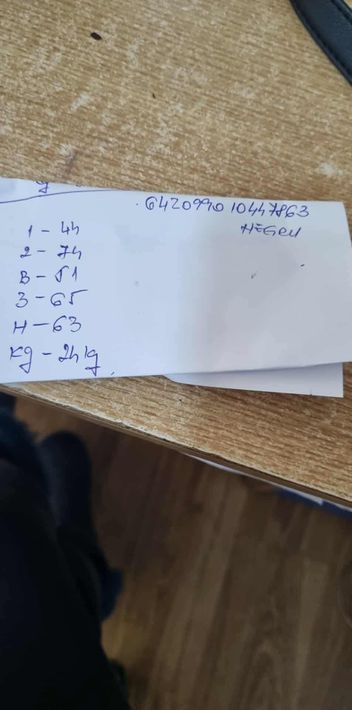 642099010447863
NEGRU
1 - 44
2 - 74
B - 51
3 - 65
H - 63
Kg - 24 kg